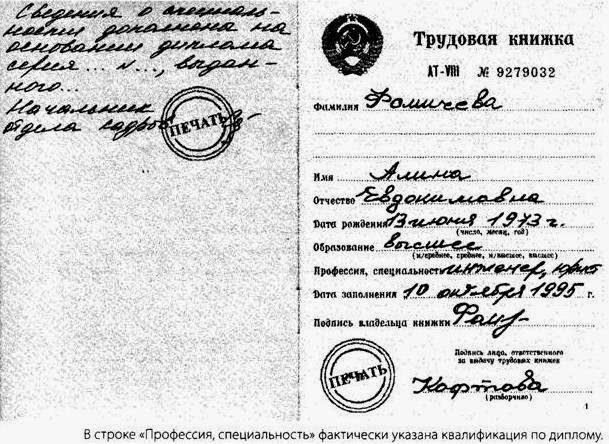 Сведения о специаль-
ности дополнена на
основании диплома
серия... №..., выдан-
ного...
Начальник
отдела кадров
ПЕЧАТЬ
Трудовая книжка
АТ-VIII № 9279032
Фамилия Фомичева
Имя Алина
Отчество Евдокимовна
Дата рождения 13 июня 1973 г.
(число, месяц, год)
Образование высшее
(н/среднее, среднее, н/высшее, высшее)
Профессия, специальность инженер, юрист
Дата заполнения 10 октября 1995 г.
Подпись владельца книжки Фом
Подпись лица, ответственного
за выдачу трудовых книжек
ПЕЧАТЬ
Кофтова
(разборчиво)
1
В строке «Профессия, специальность» фактически указана квалификация по диплому.